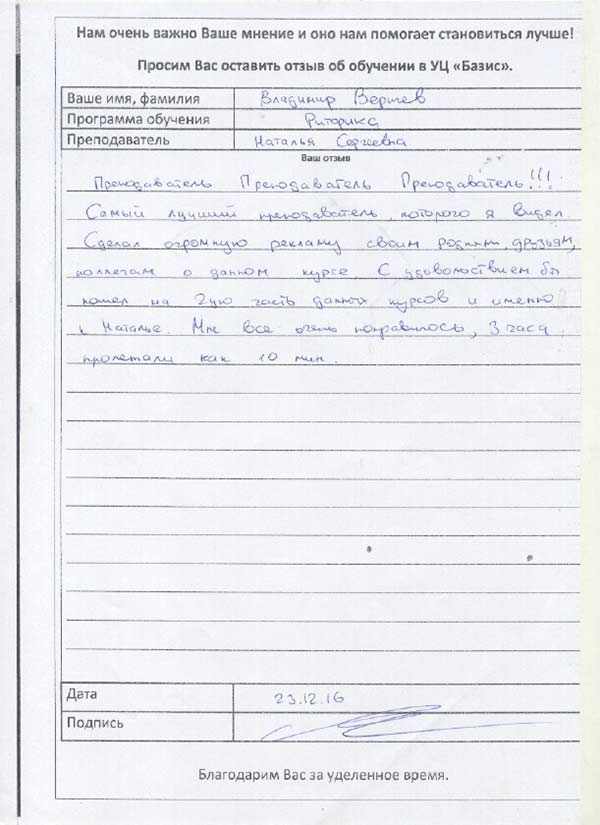 Нам очень важно Ваше мнение и оно нам помогает становиться лучше!
Просим Вас оставить отзыв об обучении в УЦ «Базис».
Ваше имя, фамилия Владимир
Программа обучения Риторика
Преподаватель Наталья Сергеевна
Ваш отзыв
Преподаватель Преподаватель Преподаватель!!!
Самый лучший преподаватель, которого я видел.
Сделал огромную рекламу своим родным, друзьям,
коллегам о данном курсе. С удовольствием бы
пошел на 2ую часть данных курсов и именно
к Наталье. Мне все очень понравилось, 3 часа
пролетали как 10 мин.
Дата 23.12.16
Подпись
Благодарим Вас за уделенное время.